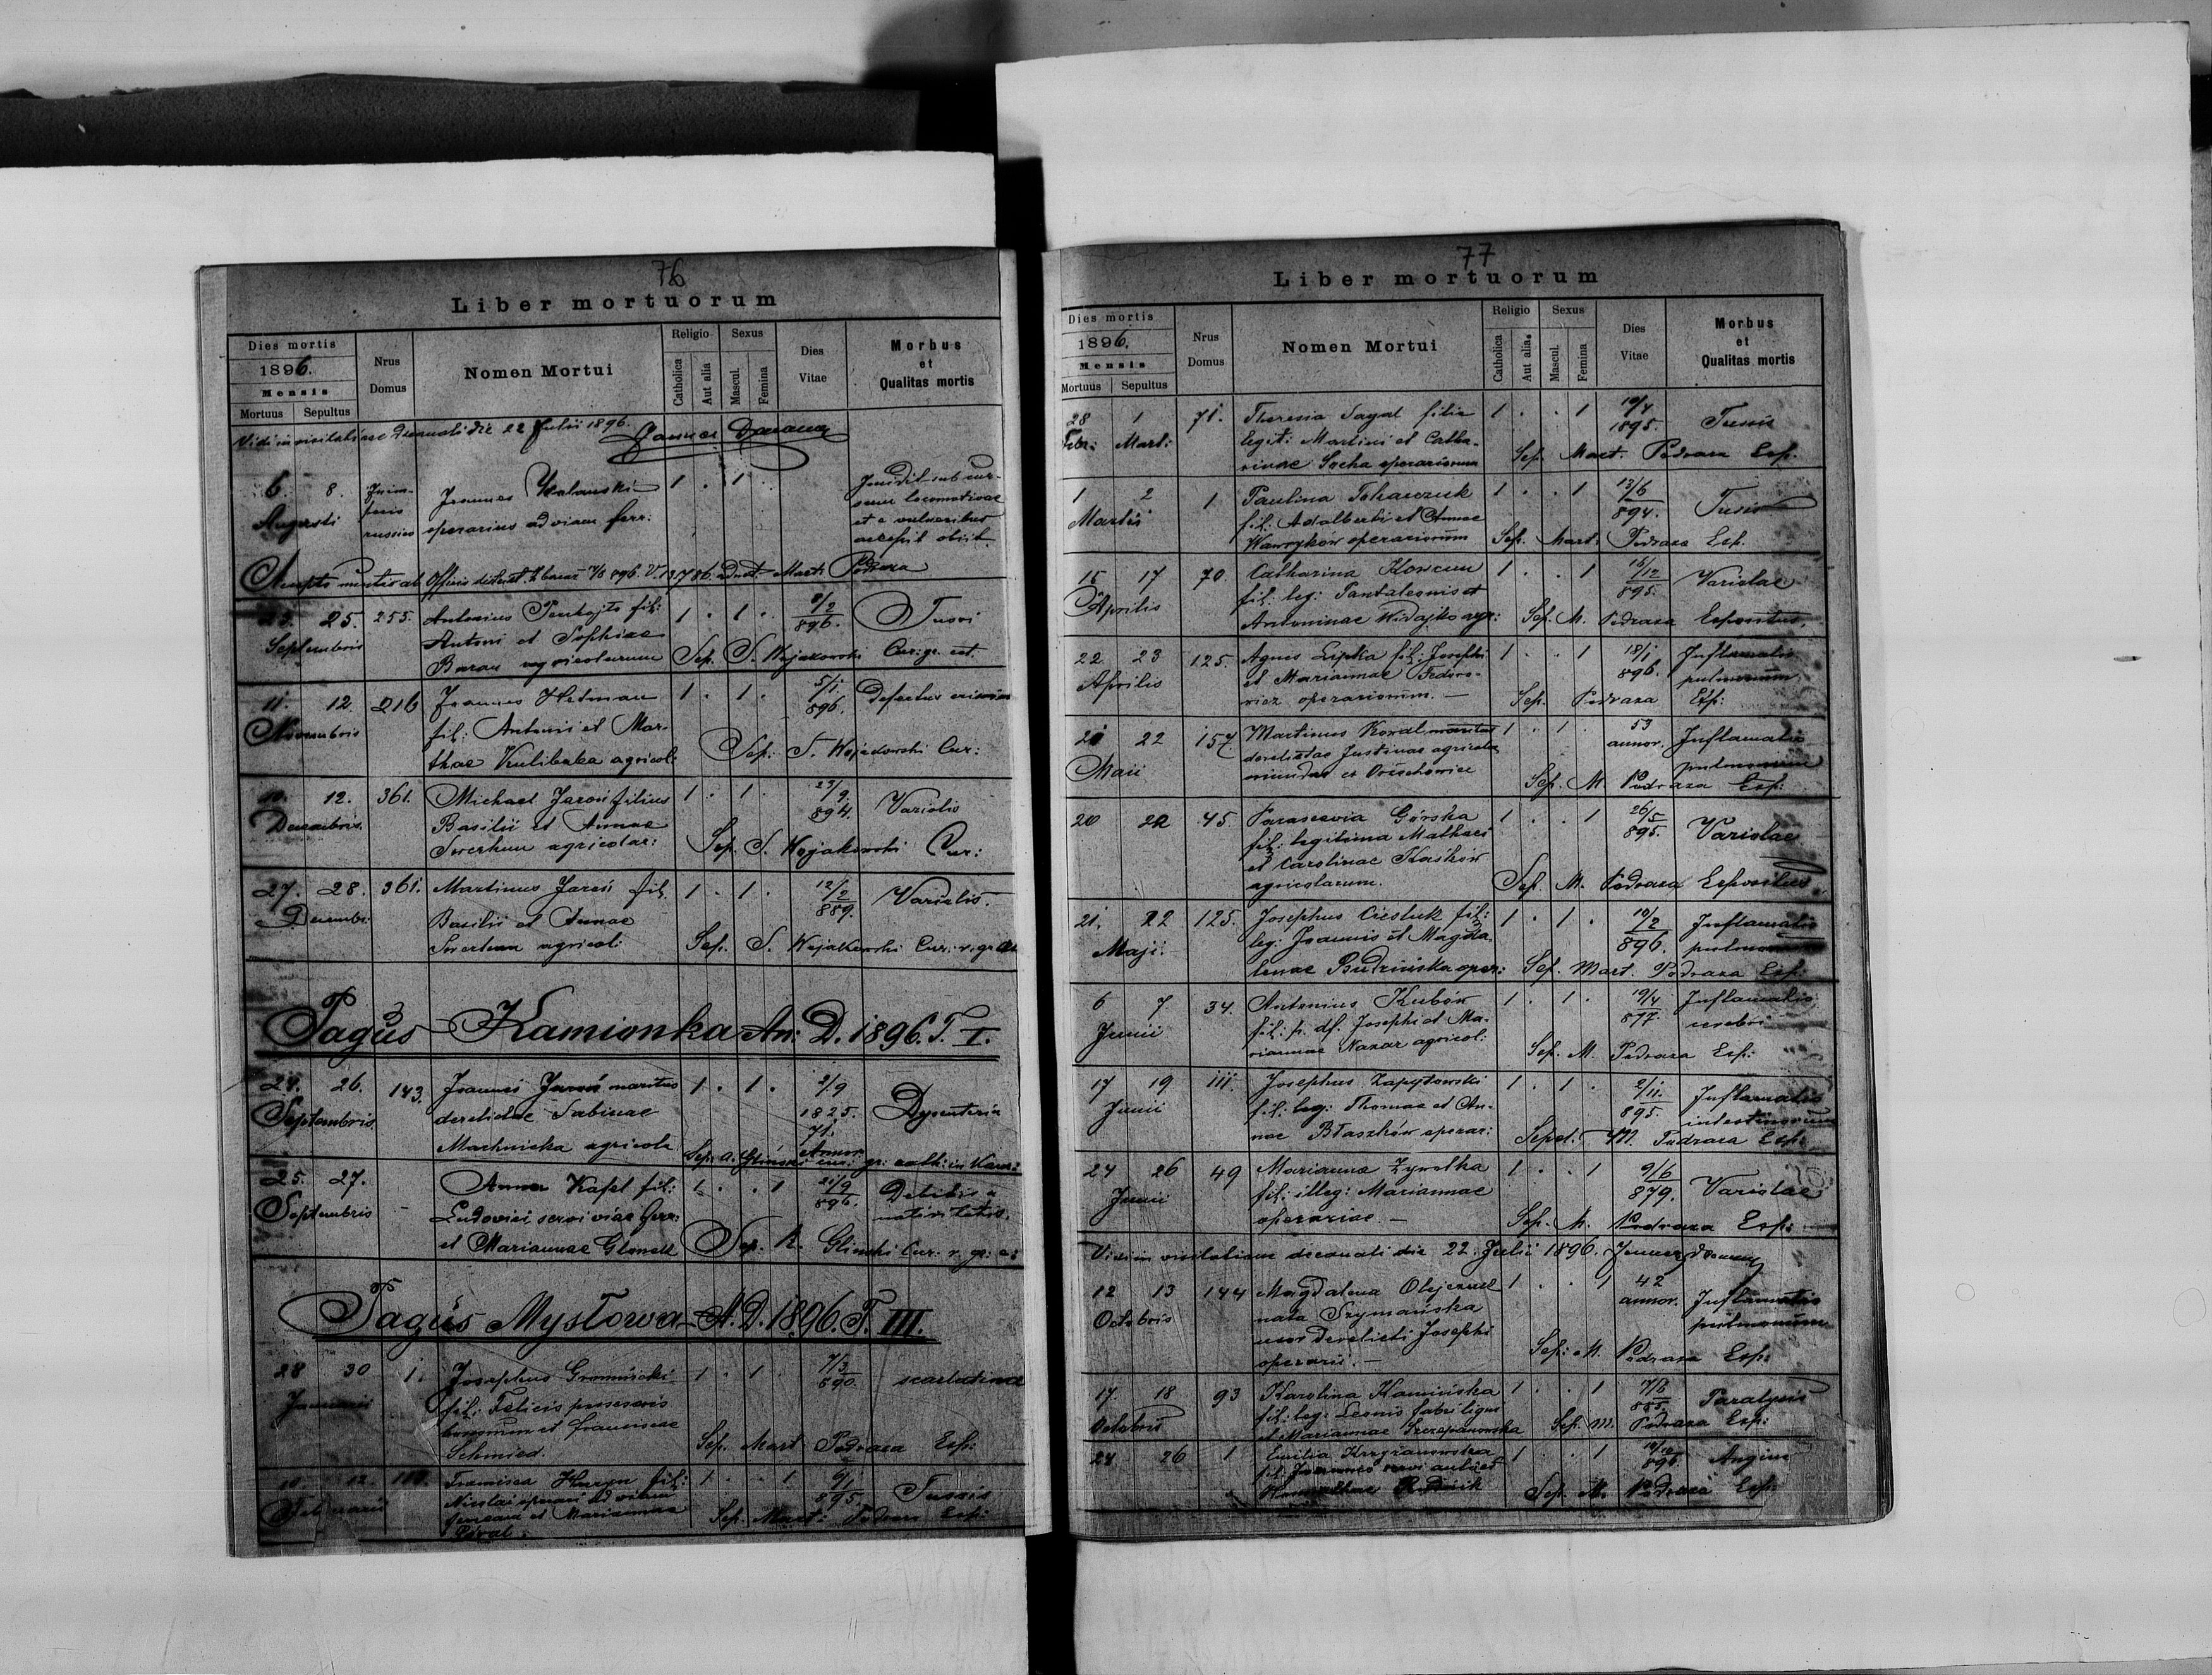 76
Liber mortuorum
Dies mortis
1896.
Mensis
Mortuus Sepultus
Nrus
Domus
Nomen Mortui
Religio
Catholica
Aut alia
Sexus
Mascul.
Femina
Dies
Vitae
Morbus
et
Qualitas mortis
Vidi in visitatione decanali die 22 Julii 1896.
6. 8. Joannes 1 . 1
Augusti operarius ad viam ferr:
sub cur-
locomotivae
et e vulneribus
obiit
25. 255. Antonius fil: 1 . 1 . 2/2 Tussi
Septembris Antoni et Sophiae 896.
Baran agricolarum Sep. S. Wojakowski Cur: gr. cat.
11. 12. 216 Joannes Hetman 1 . 1 . 5/1. Defectus
Novembris fil: Antoni et Mar- 896.
thae Kulibaka agricol: Sep: S. Wojakowski Cur:
10. 12. 361. Michael Jaroń filius 1 . 1 . 23/9. Variolis
Decembris. Basilii et Annae 894.
agricolar: Sep. S. Wojakowski Cur:
27. 28. 361. Martinus Jaroń fil. 1 . 1 . 12/2 Variolis.
Decembr: Basilii et Annae 889.
agricol: Sep. S. Wojakowski Cur: r. gr.
Pagus Kamionka An: D. 1896. T. I.
26. 143. Joannes Jaroń maritus 1 . 1 . 2/9
Septembris derelictae Sabinae 1825. Dysenteria
Machnicka agricola 71. Annor.
Sep. A. Gliński cur: gr: cath: in Kam:
25. 27. - Anna Kafel fil: 1 . . 1 21/9 Debilis a
Septembris Ludovici servi viae ferr: 896. nativitate.
et Mariannae Sep. R. Gliński Cur. r. gr:
Pagus Mysłowa A. D. 1896. T. III.
28 30 1. Josephus 1 . 1 . 7/3 scarlatina
Januarii fil: Felicis possessoris 890.
bonorum et Franciscae
Schmied. Sep. Mart Podraza Exp:
10 12. 110. Francisca fil: 1 . . 1 6/1 Tussis
Februarii Nicolai operari ad viam 895.
ferream et Mariannae Sep. Mart: Podraza Exp:
Kowal
77
Liber mortuorum
Dies mortis
1896.
Mensis
Mortuus Sepultus
Nrus
Domus
Nomen Mortui
Religio
Catholica
Aut alia
Sexus
Mascul.
Femina
Dies
Vitae
Morbus
et
Qualitas mortis
28 1 71. Theresia Sagal filia 1 . . 1 10/4 Tussis
Febr: Mart: legit: Martini et Catha- 1895.
rinae Socha operariorum Sep. Mart. Podraza Exp.
1 2 1 Paulina 1 . . 1 13/6 Tussis
Martii fil: Adalberti et Annae 894.
Wawryków operariorum Sep. Mart: Podraza Exp.
15 17 70. Catharina Korczun 1 . . 1 16/12 Variolae
Aprilis fil: leg: Pantaleonis et 895.
Antoninae Widajko agr: Sep. M. Podraza Expositus.
22 23 125. Agnes Lipka fil: Josephi 1 . . 1 18/1 Inflamatio
Aprilis et Mariannae Fedoro- 896. pulmonum
wicz operariorum. — Sep. Podraza Exp:
20 22 157. Martinus Kowal maritus 1 . 1 . 53 Inflamatio
Maii derelictae Justinae agricola annor. pulmonum
oriundus ex Orzechowice Sep. M Podraza Exp:
20 22 45. Parascevia Górska 1 . . 1 26/5 Variolae
fil: legitima Mathaei 895.
et Carolinae Kaśków
agricolarum. Sep. M. Podraza Expositus.
21. 22 125. Josephus Cieśluk fil: 1 . 1 . 10/2 Inflamatio
Maji. leg: Joannis et Magda- 896. pulmonum
lenae Budzińska oper: Sep. Mart. Podraza Exp:
6 7. 34. Antonius Kubów 1 . 1 . 19/4 Inflamatio
Junii fil: p. df. Josephi et Ma- 877. cerebri
riannae Nazar agricol: Sep. M. Podraza Exp:
17 19 111. Josephus Zapytowski 1 . 1 . 2/11. Inflamatio
Junii fil: leg: Thomae et An- 895. intestinorum
nae Błaszków operar: Sepel. M. Podraza Exp:
24 26 49 Marianna Zywotka 1 . . 1 9/6 Variolae
Junii fil: illeg: Mariannae 879.
operariae. — Sep. M. Podraza Exp:
Vidi in visitatione decanali die 22. Julii 1896.
12 13 144 Magdalena Olejczuk 1 . . 1 42 Inflamatio
Octobris nata Szymańska annor. pulmonum
uxor derelicti Josephi
operarii. — Sep: M. Podraza Exp:
17. 18 93 Karolina Kamińska 1 . . 1 7/6 Paralysis
Octobris fil: leg: Leonis fabri lign 885.
et Mariannae Szczepanowska Sep. M. Podraza Exp:
24 26 1 Emilia Krzyżanowska 1 . . 1 Angina
fil. Joannes servi aulici et 896.
Rudnik Sep. M. Podraza Exp.